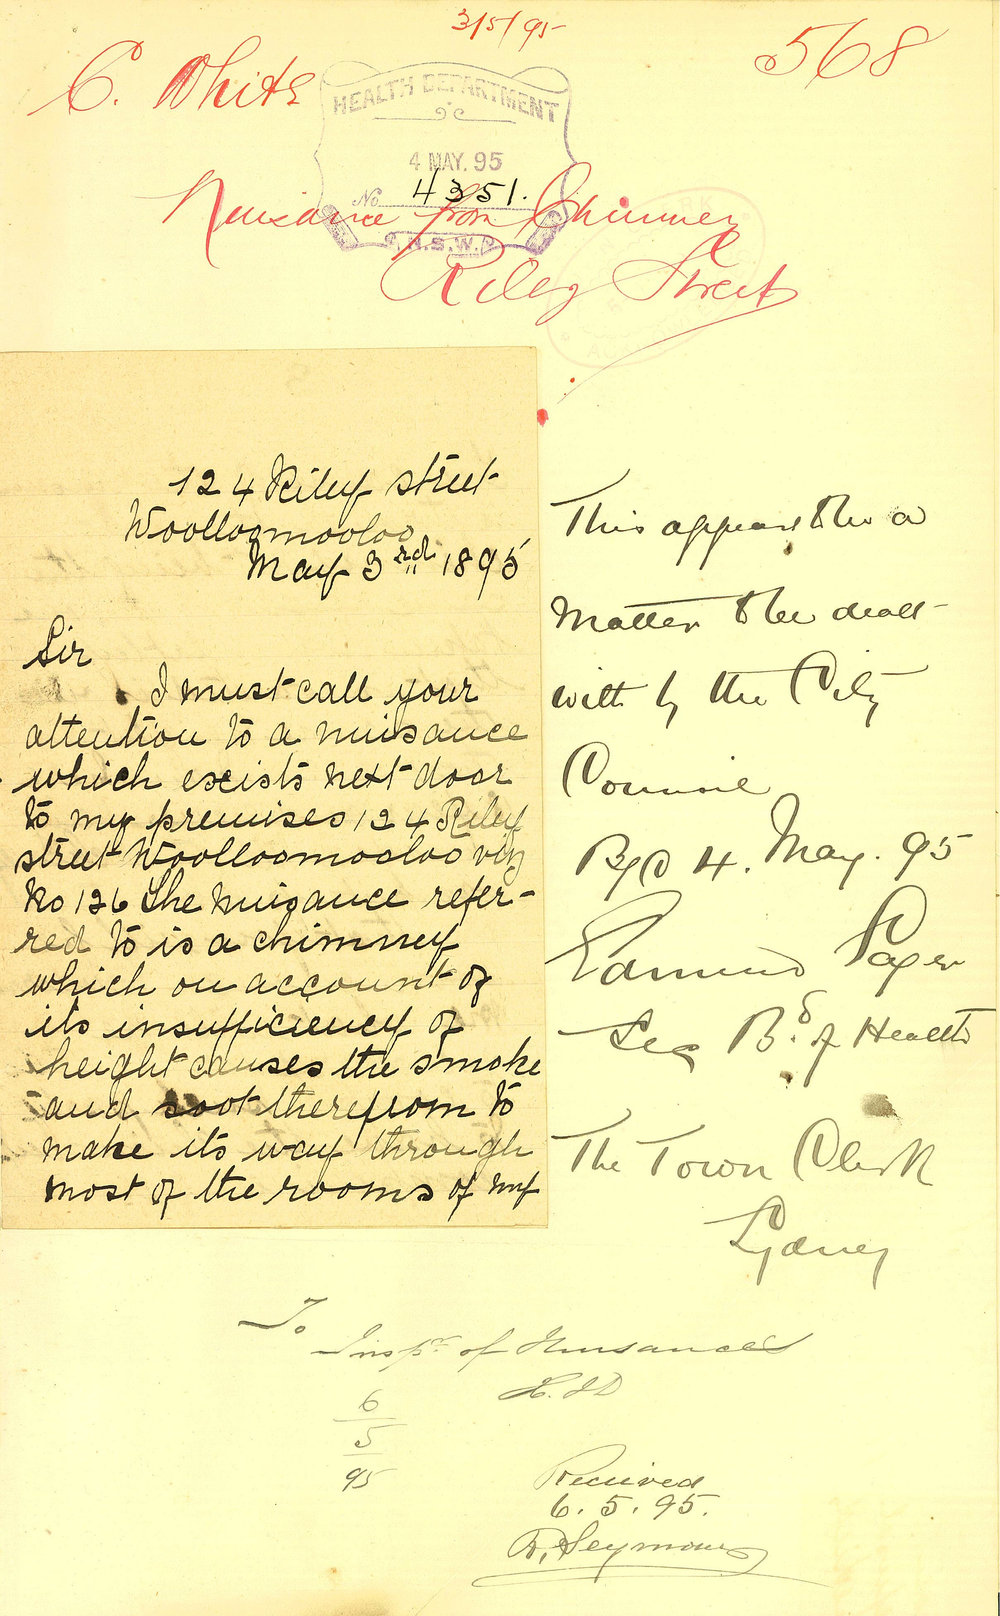 3/5/95
568
C. White
HEALTH DEPARTMENT
4 MAY. 95
No 4351.
N.S.W.
Nuisance from Chimney
Riley Street
124 Riley street
Woolloomooloo
May 3rd 1895
Sir
I must call your
attention to a nuisance
which excists next door
to my premises 124 Riley
street Woolloomooloo viz
No 126 The nuisance refer-
red to is a chimney
which on account of
its insufficiency of
height causes the smoke
and soot therefrom to
make its way through
most of the rooms of my
This appears to be a
Matter to be dealt
with by the City
Council
4. May. 95
Edmund Sager
Sec Bd. of Health
The Town Clerk
Sydney
To
Inspr. of Nuisances
6
5
95
Received
6.5.95.
R. Seymour